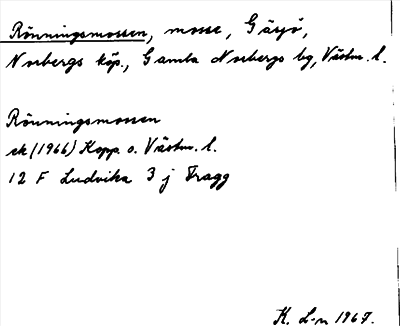 Rönningsmossen, mosse, Gäsjö,
Norbergs köp., Gamla Norbergs bg, Västm. l.
Rönningsmossen
ek (1966) Kopp. o. Västm. l.
12 F Ludvika 3 j Fragg
K. L-n 1967.